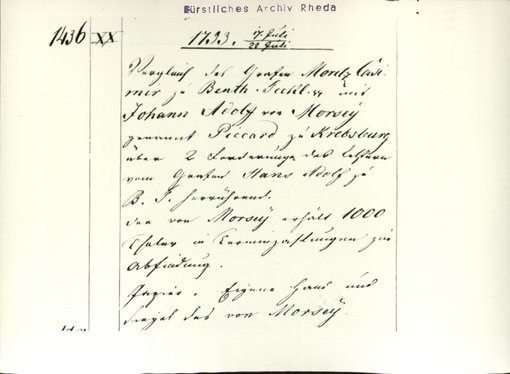 Fürstliches Archiv Rheda
1436 XX 1733. 17 Juli
22 Juli
Vergleich des Grafen Moritz Casi-
mir zu Benth. Teckl. und
Johann Adolf von Morsey
genannt Piccard zu Krebsburg
über 2 Forderungen des letztern
vom Grafen Hans Adolf zu
B. T. herrührend.
der von Morsey erhält 1000
Thaler in Terminzahlungen zur
Abfindung.
Papier. Eigene Hand und
Siegel des von Morsey.